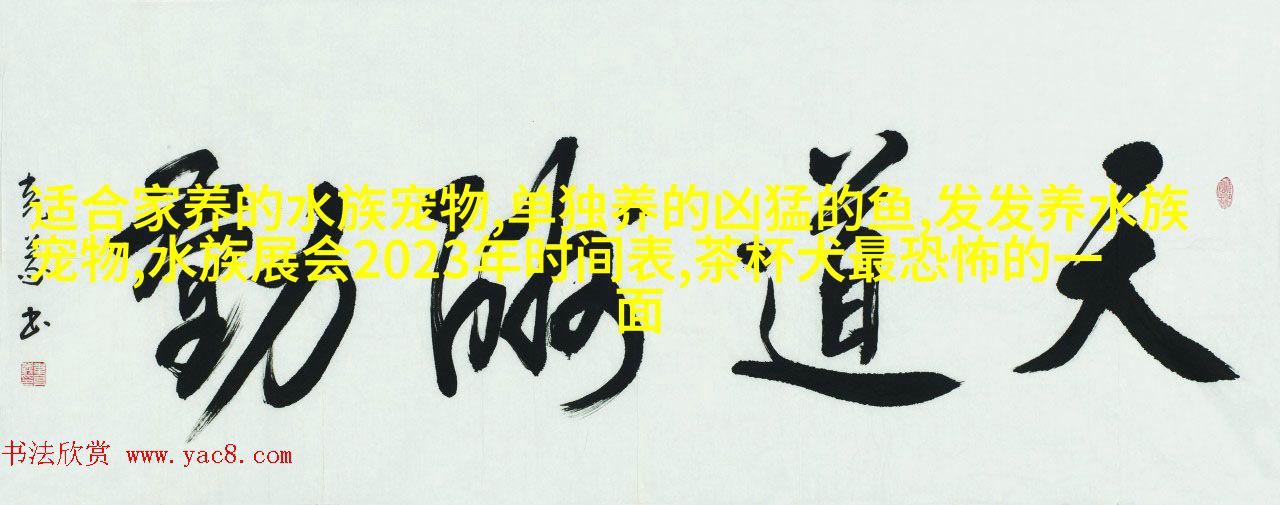 天道酬勤
适合家养的水族宠物,单独养的凶猛的鱼,发发养水族
宠物,水族展会2023年时间表,茶杯犬最恐怖的一
面
书法欣赏 www.yac8.com